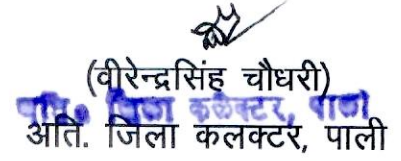 (वीरेन्द्रसिंह चौधरी)
अति. जिला कलक्टर, पाली
अति. जिला कलक्टर, पाली